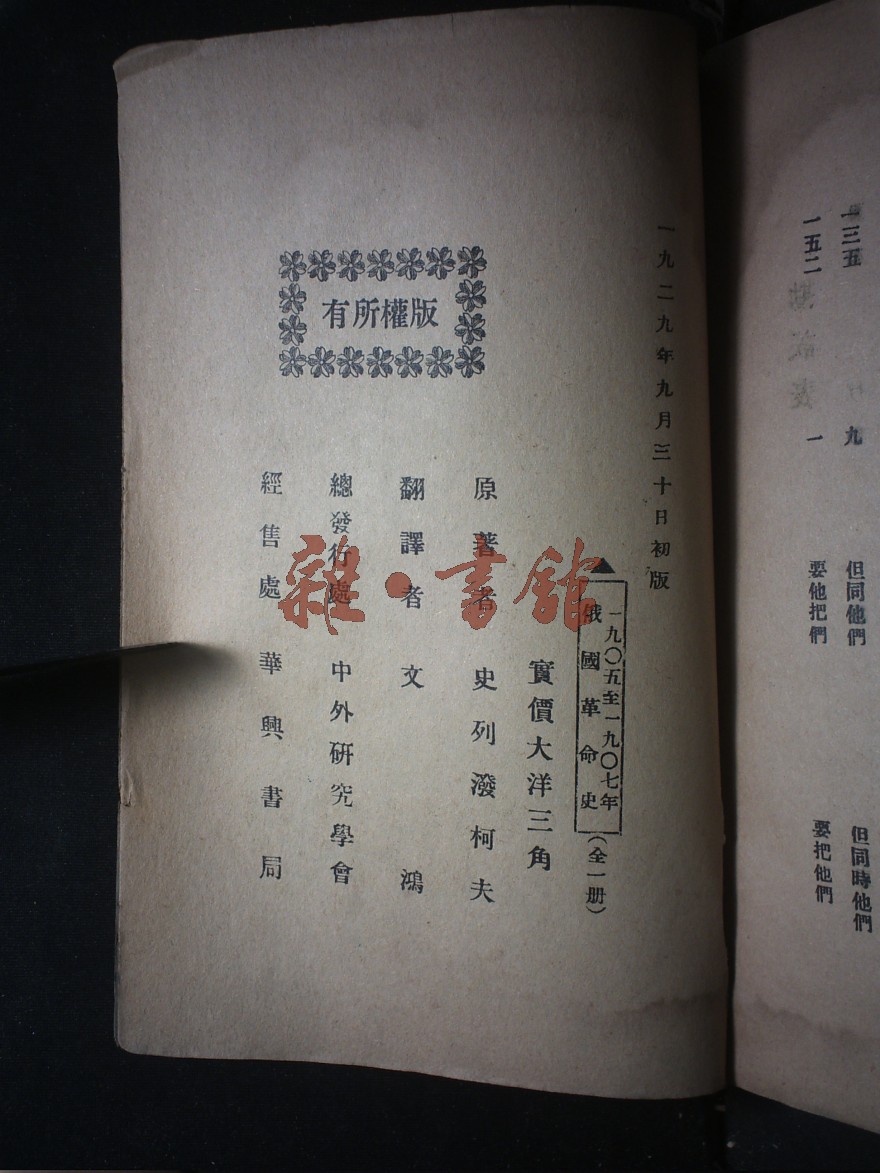 一三五　九　但同他們　但同時他們
一五二　一　要他把們　要把他們
一九二九年九月三十日初版
一九〇五至一九〇七年
俄國革命史
(全一册)
實價大洋三角
原著者　史列潑柯夫
翻譯者　文鴻
總發行處　中外研究學會
經售處　華興書局
有所權版
雜·書館